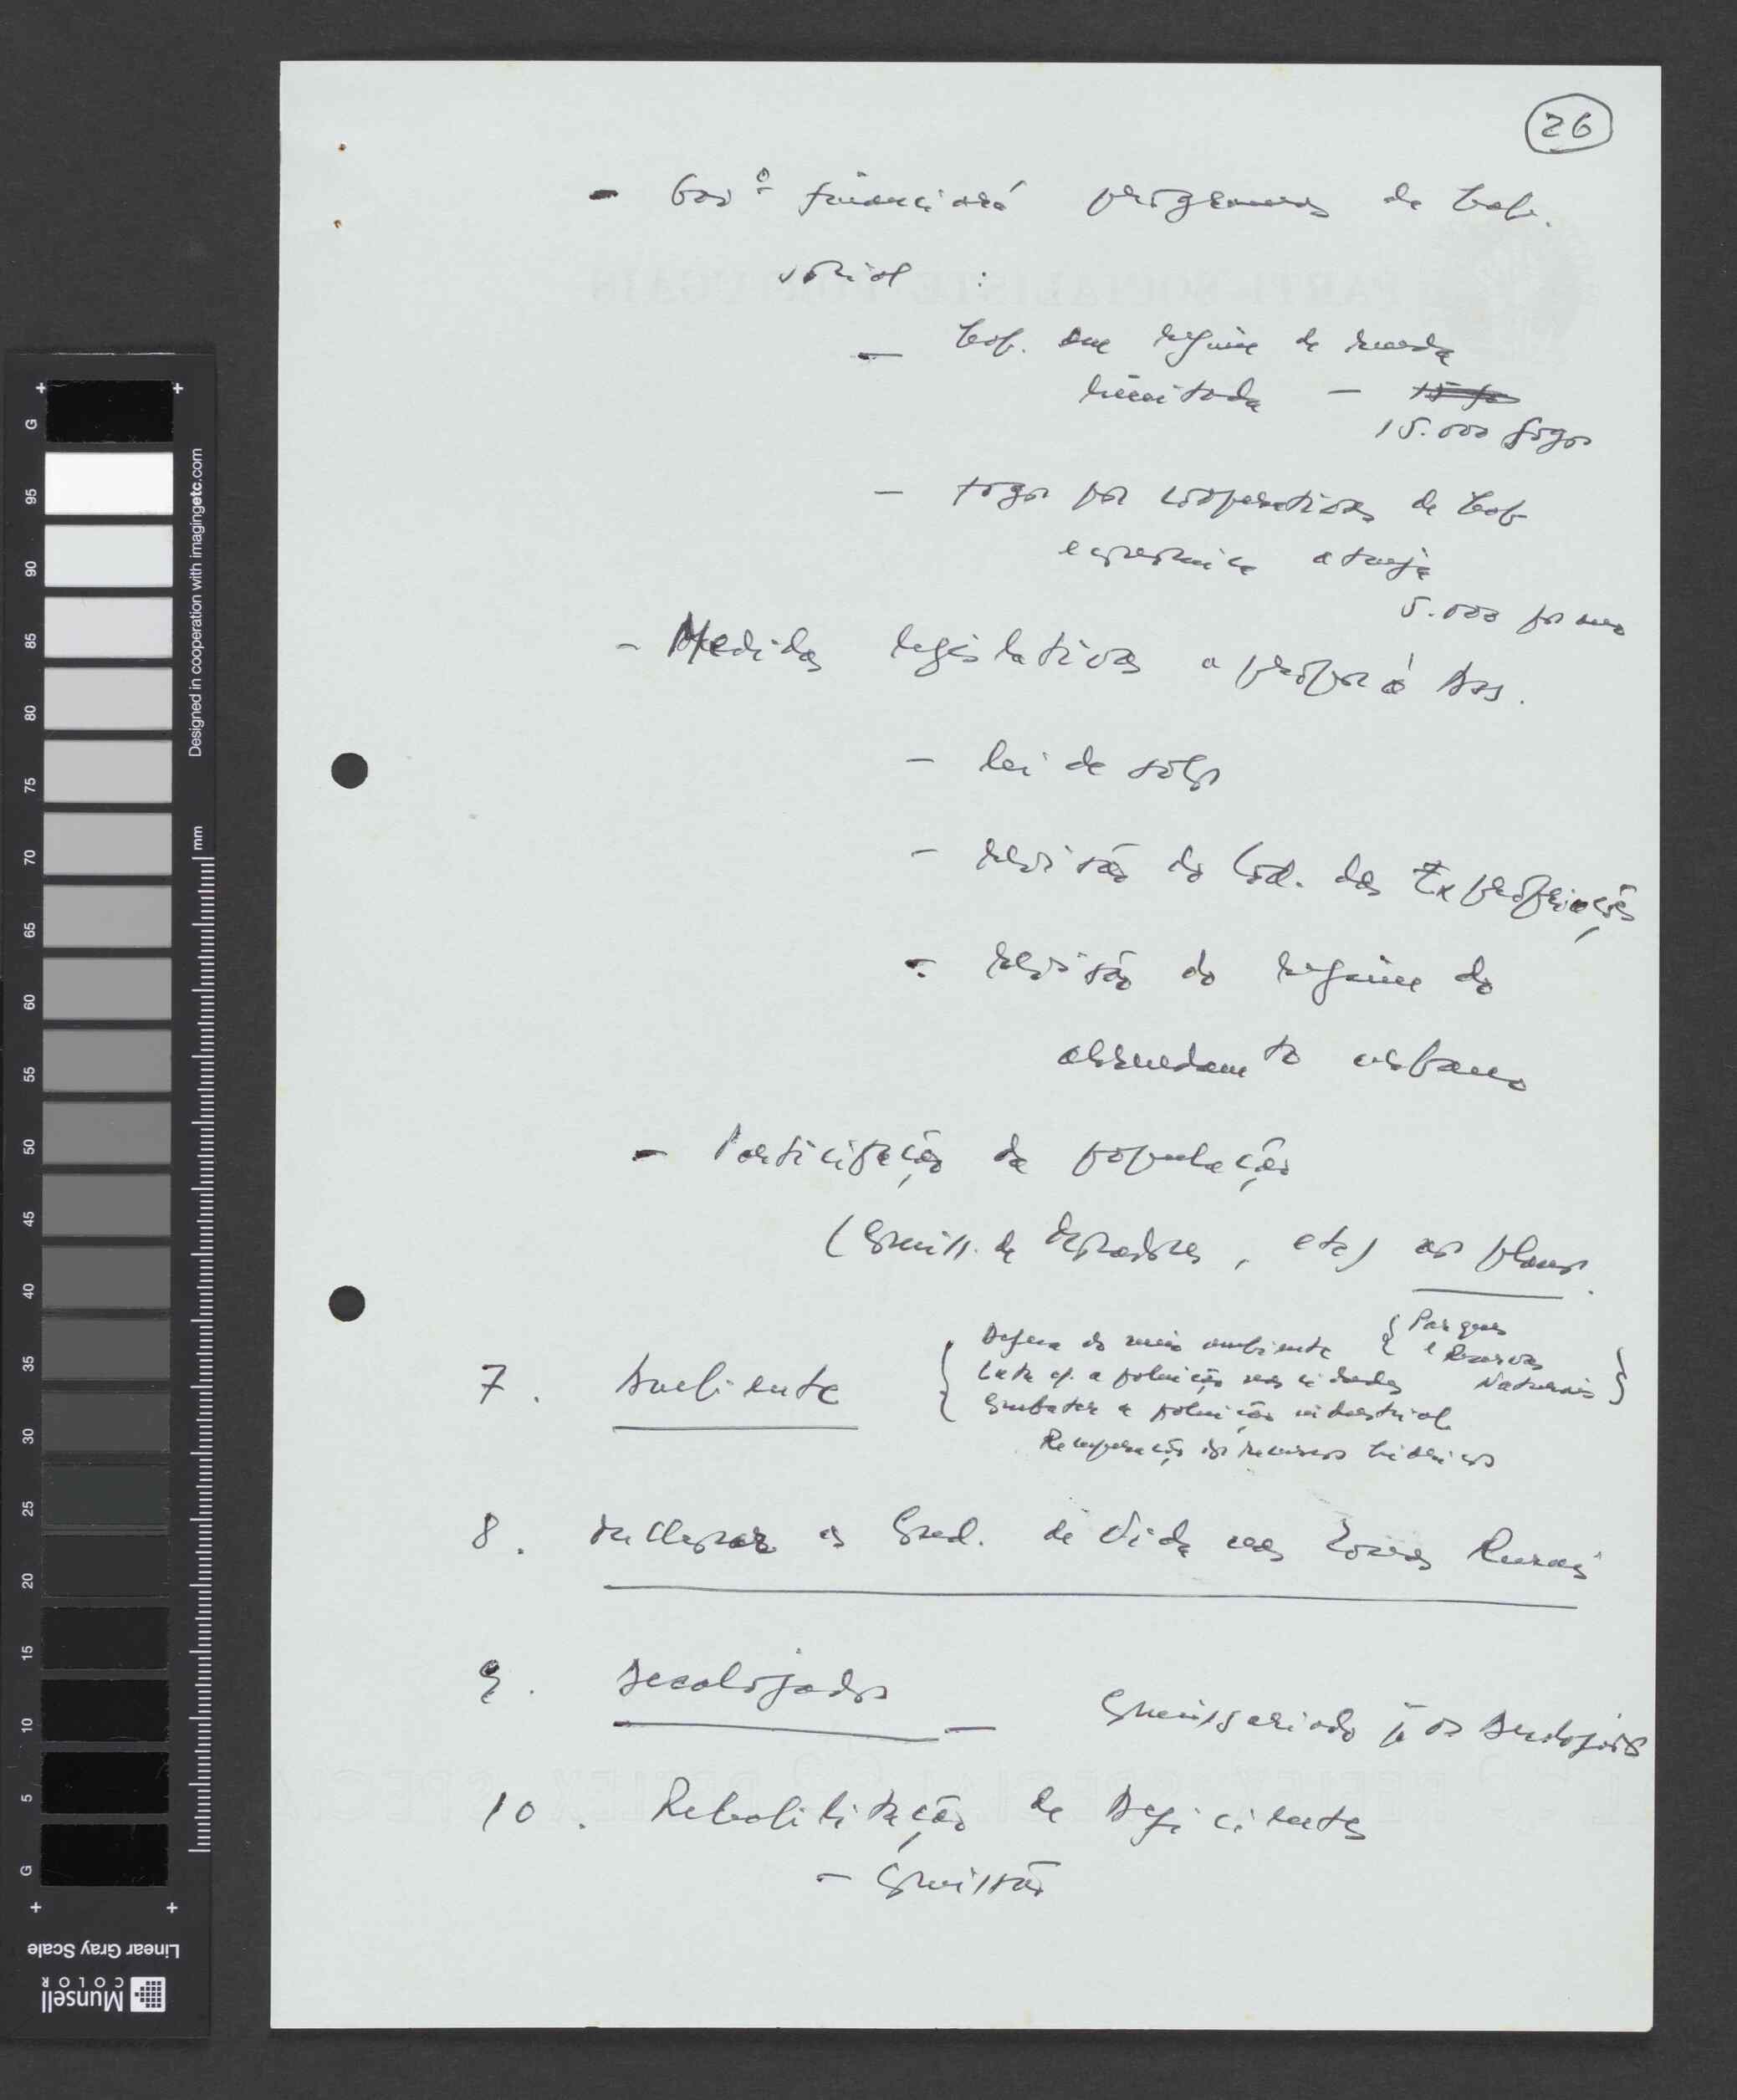 26
- Govº financiará programas de hab.
social :
- hab. em regime de renda
limitada - 15 fo
15.000 fogos
- fogos por cooperativas de hab
economica atinja
5.000 por ano
- Medidas legislativas a propor à Ass.
- lei de solos
- revisão do Cod. das Expropriações
- revisão do regime do
arrendamto urbano
- Participação da população
(Comiss. de moradores, etc) aos planos.
7. Ambiente
{ Defesa do meio ambiente { Parques
e Reservas
Naturais }
Luta c/. a poluição nas cidades
Combater a poluição industrial
Recuperação dos recursos hidricos
8. Melhorar as Cond. de Vida nas Zonas Rurais
9. Desalojados - Comissariado p/ os Desalojados
10. Rehabilitação de Deficientes
- Comissão
PARTI SOCIALISTE PORTUGAIS
Designed in cooperation with imagingetc.com
mm
G 95 90 85 80 75 70 65 60 55 50 45 40 35 30 25 20 15 10 5 G
Linear Gray Scale
Munsell
COLOR